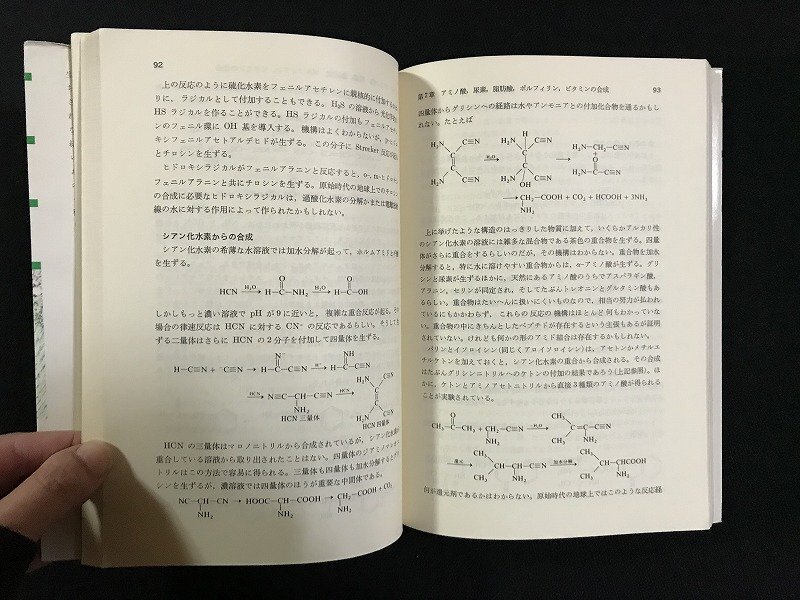 92
上の反応のように硫化水素をフェニルアセチレンに親核的に付加するかわ
りに, ラジカルとして付加することもできる. H₂Sの溶液から光化学的に
HSラジカルを作ることができる. HSラジカルの付加もフェニルアセチレ
ンのフェニル環に OH 基を導入する. 機構はよくわからないが,
キシフェニルアセトアルデヒドが生ずる. この分子に Strecker 反応が
とチロシンを生ずる.
ヒドロキシラジカルがフェニルアラニンと反応すると, o-, m-, p-
フェニルアラニンと共にチロシンを生ずる. 原始時代の地球上でのチロシン
の合成に必要なヒドロキシラジカルは, 過酸化水素の分解かまたは
線の水に対する作用によって作られたかもしれない.
シアン化水素からの合成
シアン化水素の希薄な水溶液では加水分解が起って, ホルムアミドと
を生ずる.
HCN →(H₂O) H—C(=O)—NH₂ →(H₂O) H—C(=O)—OH
しかしもっと濃い溶液で pH が9に近いと, 複雑な重合反応が起る. その
場合の律速反応は HCN に対する CN⁻ の反応であるらしい. そうして生
ずる二量体はさらに HCN の2分子を付加して四量体を生ずる.
H—C≡N + ⁻C≡N → H—C(=N⁻)—C≡N →(H⁺) H—C(=NH)—C≡N
→(HCN) N≡C—CH(NH₂)—C≡N →(HCN) H₂N C≡N C=C H₂N C≡N
HCN 三量体 HCN 四量体
HCN の三量体はマロノニトリルから合成されているが, シアン化水素の
重合している溶液から取り出されたことはない. 四量体のジアミノマレオニ
トリルはこの方法で容易に得られる. 三量体も四量体も加水分解するとグリ
シンを生ずるが, 濃溶液では四量体のほうが重要な中間体である.
NC—CH(NH₂)—CN → HOOC—CH(NH₂)—COOH → CH₂(NH₂)—COOH + CO₂
第7章 アミノ酸, 尿素, 脂肪酸, ポルフィリン, ビタミンの合成 93
四量体からグリシンへの経路は水やアンモニアとの付加化合物を通るかもし
れない. たとえば
H₂N C≡N C=C H₂N C≡N →(H₂O) H H₂N C≡N C C H₂N C≡N OH → H₂N—CH₂—C≡N + O=C H₂N C≡N
→ CH₂(NH₂)—COOH + CO₂ + HCOOH + 3NH₃
上に挙げたような構造のはっきりした物質に加えて, いくらかアルカリ性
のシアン化水素の溶液には雑多な混合物である茶色の重合物を生ずる. 四量
体がさらに重合をするらしいのだが, その機構はわからない. 重合物を加水
分解すると, 特に水に溶けやすい重合物からは, α-アミノ酸が生ずる. グリ
シンと尿素が生ずるほかに, 天然にあるアミノ酸のうちでアスパラギン酸,
アラニン, セリンが同定され, そしてたぶんトレオニンとグルタミン酸もあ
るらしい. 重合物はたいへんに扱いにくいものなので, 相当の努力が払われ
ているにもかかわらず, これらの反応の機構はほとんど何もわかっていな
い. 重合物の中にきちんとしたペプチドが存在するという主張もあるが証明
されていない. けれども何かの形のアミド結合は存在するかもしれない.
バリンとイソロイシン(同じくアロイソロイシン)は, アセトンかメチルエ
チルケトンを加えておくと, シアン化水素の重合から合成される. その合成
はたぶんグリシンニトリルへのケトンの付加の結果であろう(上記参照). ほ
かに, ケトンとアミノアセトニトリルから直接3種類のアミノ酸が得られる
ことが実験されている.
CH₃—C(=O)—CH₃ + CH₂(NH₂)—C≡N →(H₂O) CH₃ C=C C≡N CH₃ NH₂
→(還元) CH₃ CH—CH—C≡N CH₃ NH₂ →(加水分解) CH₃ CH—CHCOOH CH₃ NH₂
何が還元剤であるかはわからない. 原始時代の地球上ではこのような反応経